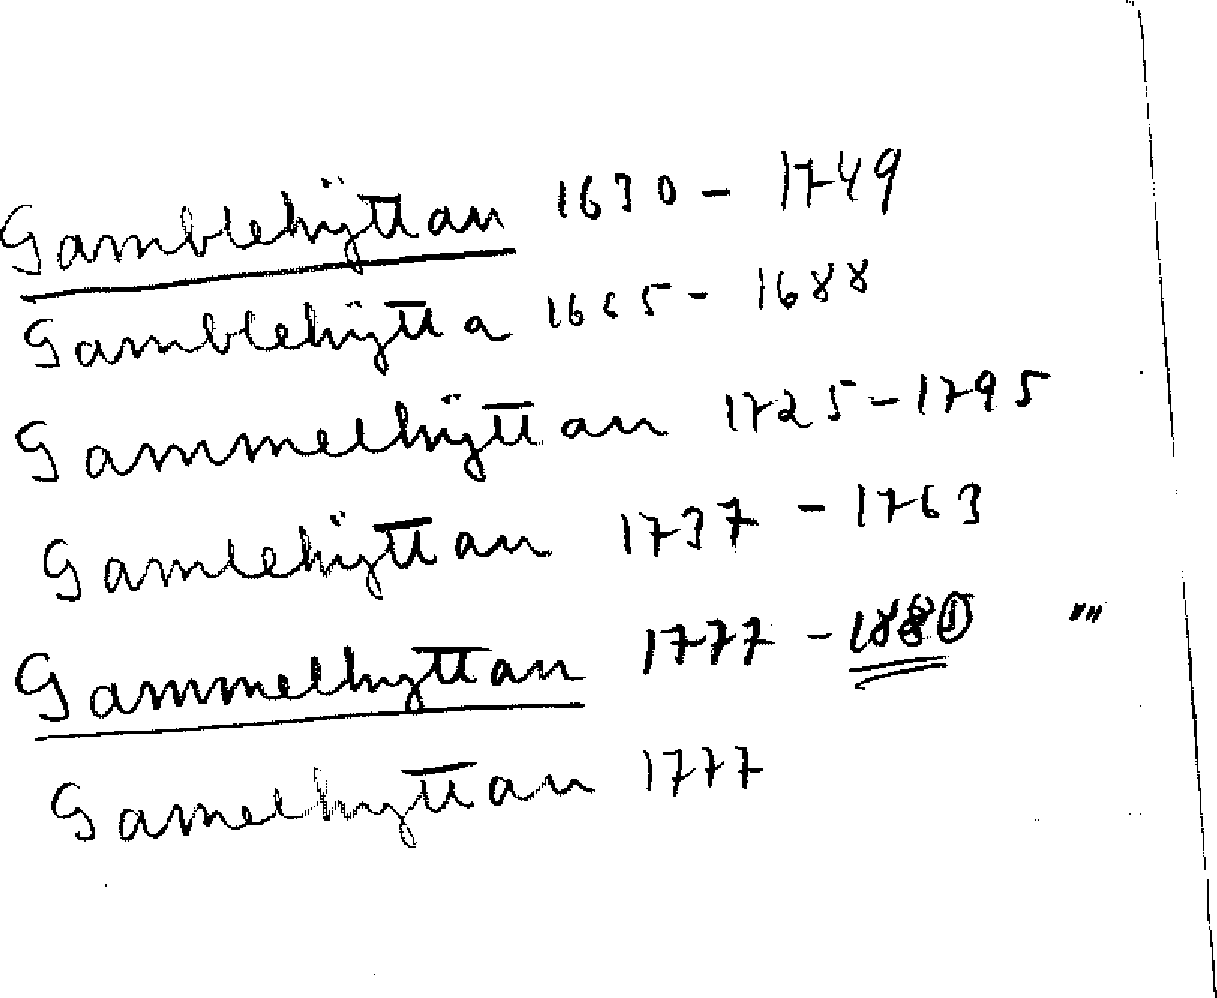 Gamblehÿttan 1630 - 1749
Gamblehÿtta 1665 - 1688
Gammelhÿttan 1725 - 1795
Gamlehÿttan 1737 - 1763
Gammelhyttan 1777 - ""
Gamelhyttan 1777